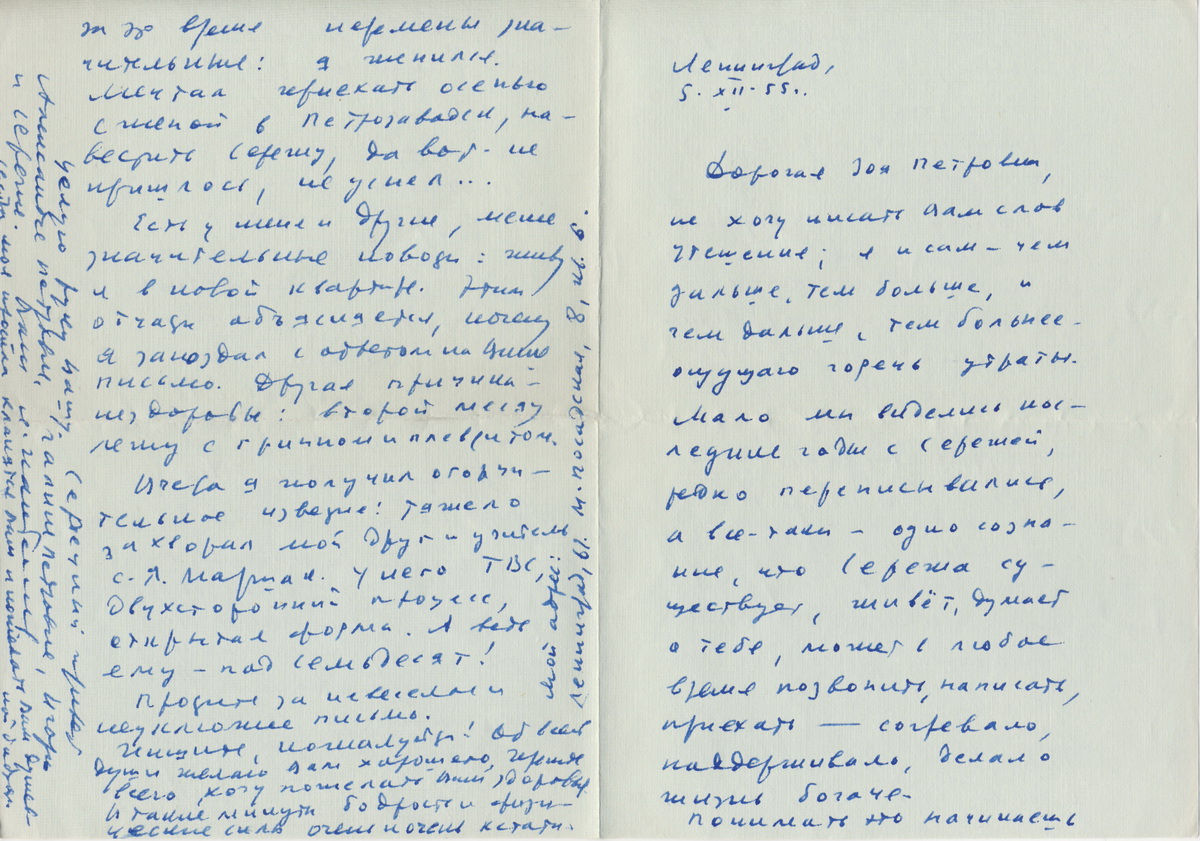 Ленинград,
5. XII. 55г.
Дорогая Зоя Петровна,
не хочу писать Вам слов
утешения; я и сам – чем
дальше, тем больше, и
чем дальше, тем больнее –
ощущаю горечь утраты.
Мало мы виделись пос-
ледние годы с Сережей,
редко переписывались,
а все-таки – одно созна-
ние, что Сережа су-
ществует, живёт, думает
о тебе, может в любое
время позвонить, написать,
приехать — согревало,
поддерживало, делало
жизнь богаче.
Понимать это начинаешь
за это время перемены зна-
чительные: я женился.
Мечтал приехать осенью
с женой в Петрозаводск, на-
вестить Сережу, да вот – не
пришлось, не успел...
Есть у меня и другие, менее
значительные новости: живу
я в новой квартире. Этим
отчасти объясняется, почему
я запоздал с ответом на Ваше
письмо. Другая причина –
нездоровье: второй месяц
лежу с гриппом и плевритом.
Вчера я получил огорчи-
тельное известие: тяжело
захворал мой друг и учитель
С. Я. Маршак. У него ТВС,
двухсторонний процесс,
открытая форма. А ведь
ему – под семьдесят!
Простите за невеселое и
неуклюжее письмо.
Пишите, пожалуйста! От всей
души желаю Вам хорошего, прежде
всего хочу пожелать Вам здоровья.
В такие минуты бодрость и физи-
ческие силы очень и очень кстати.
Мой адрес:
Ленинград, 61. М. Посадская, 8, кв. 6.
Целую руку Вашу. Сердечный привет
Александре Петровне, Галине Петровне, Игорю
и Сереже. Ваш
моя просила кланяться Вам и послать Вам